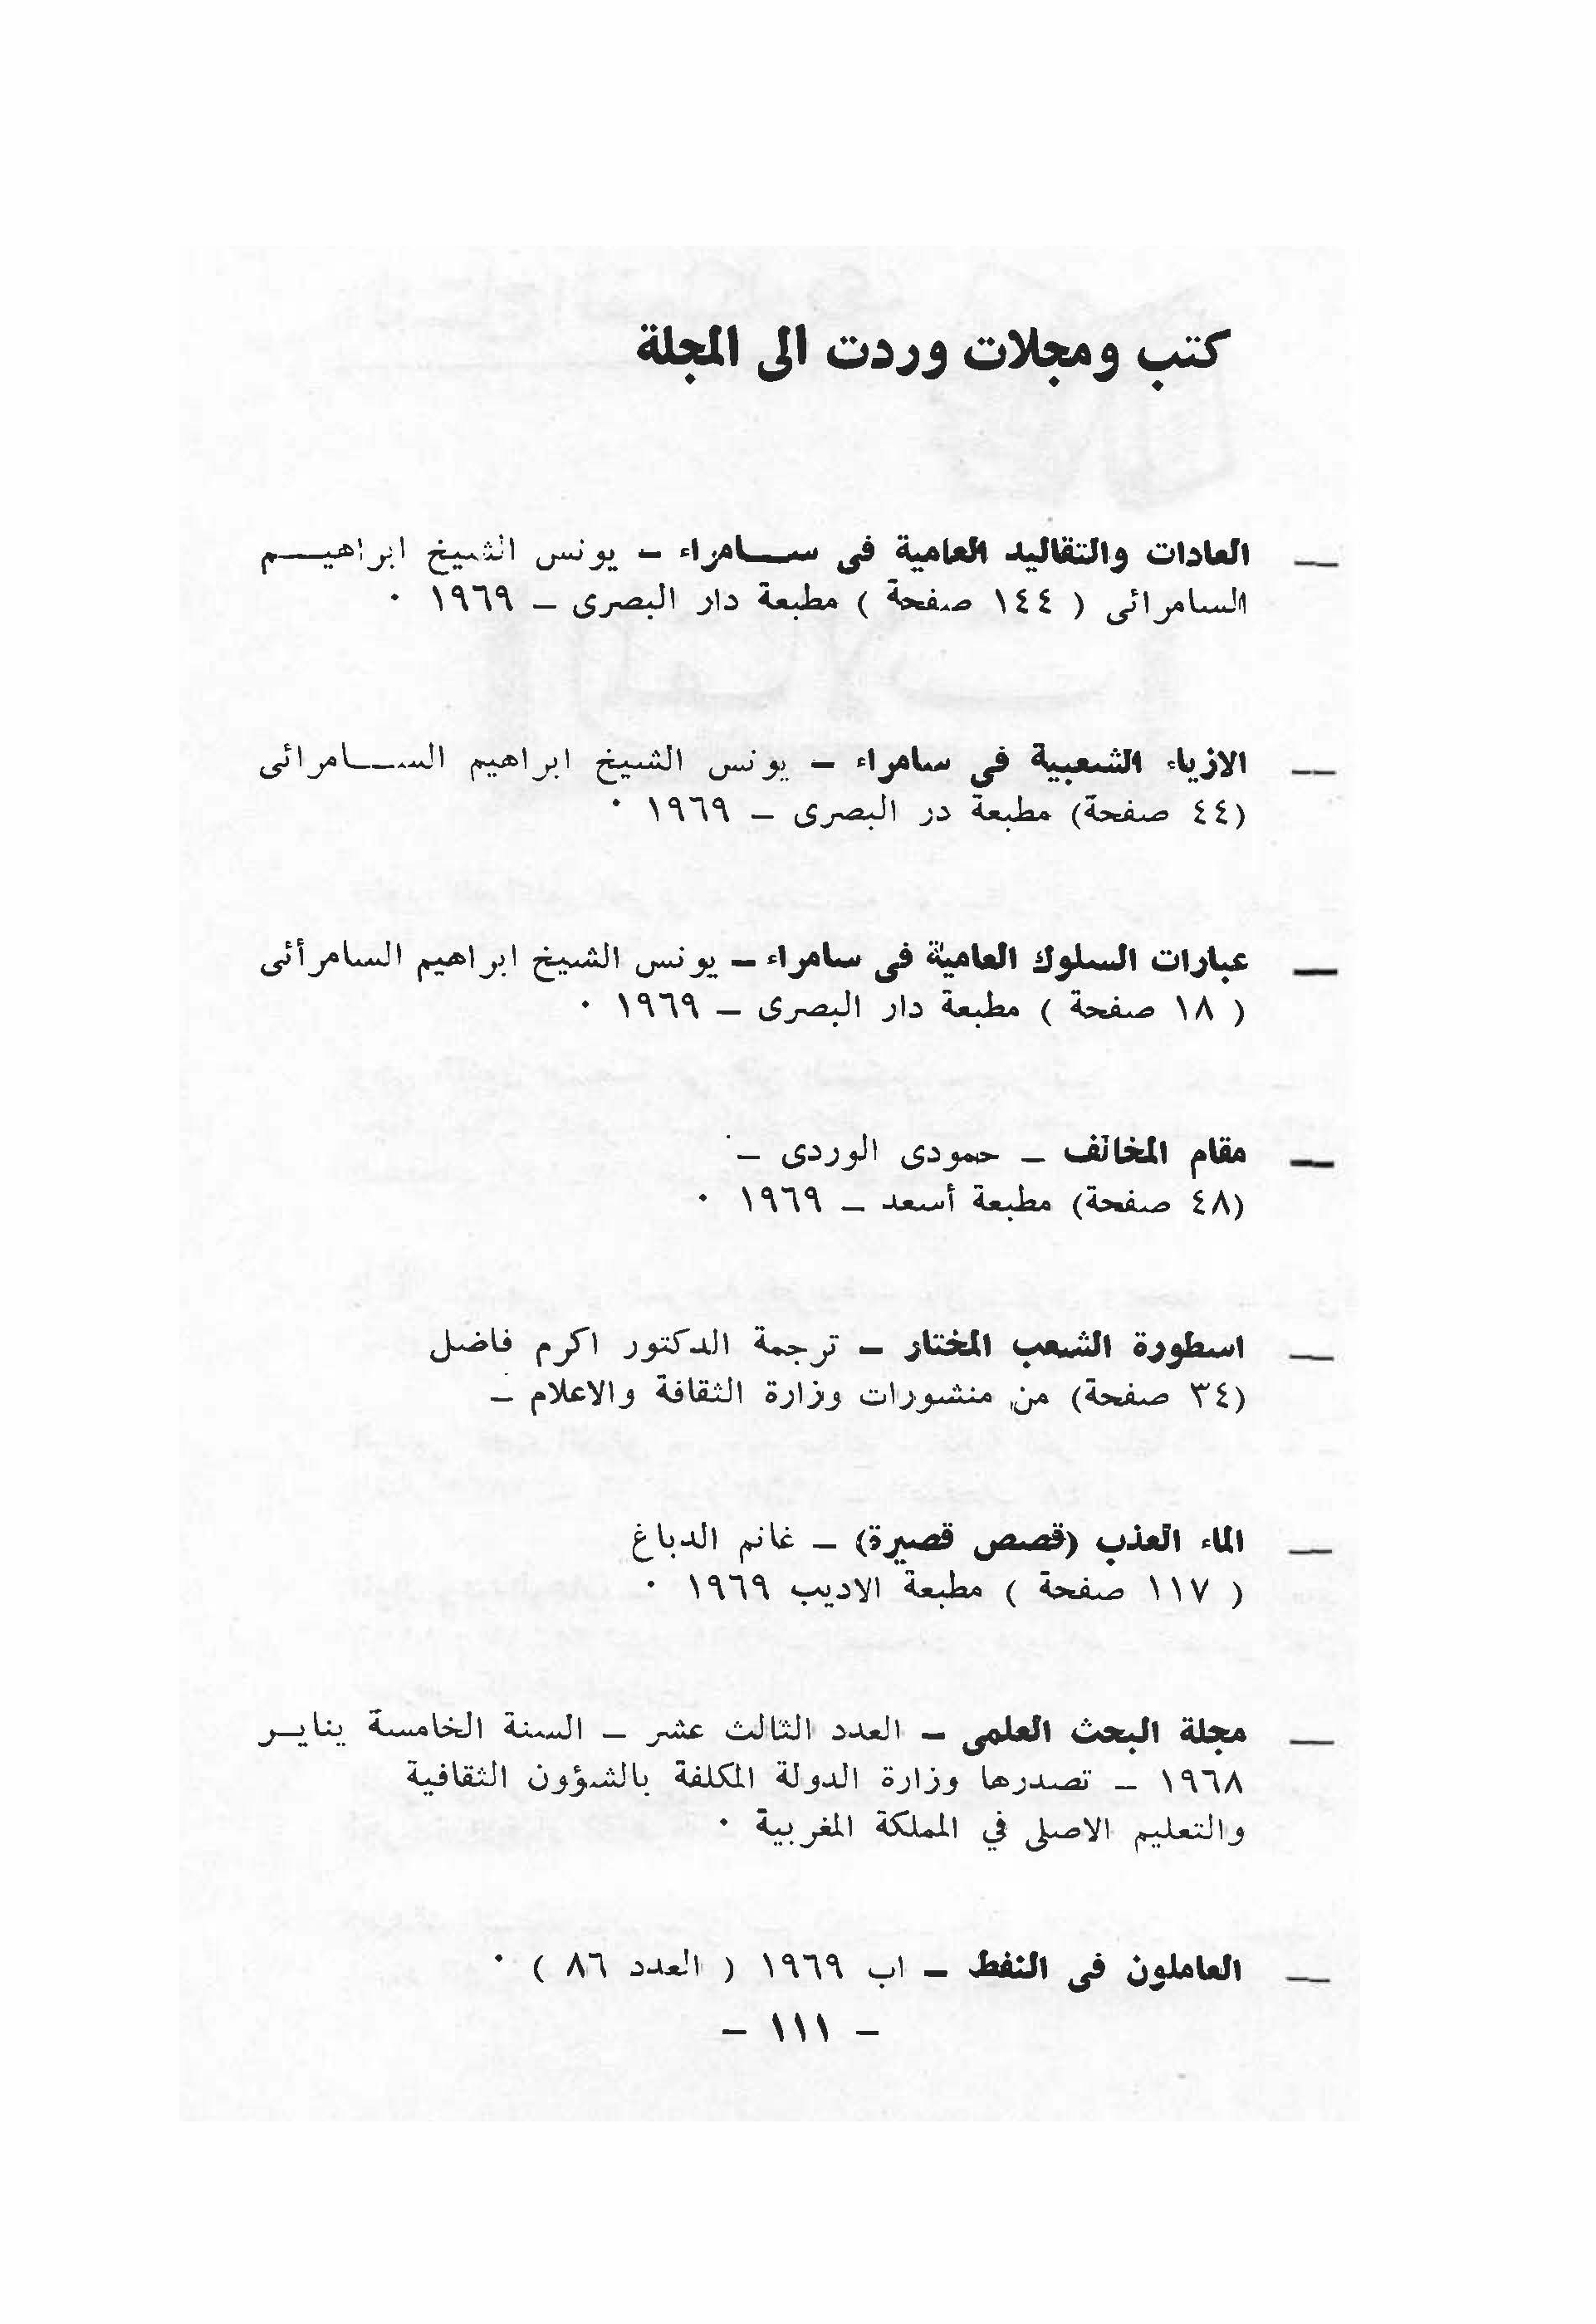 كتب ومجلات وردت الى المجلة
— العادات والتقاليد العامية فى ســامراء – يونس الشيخ ابراهيــم
السامرائى ( ١٤٤ صفحة ) مطبعة دار البصرى – ١٩٦٩ ٠
— الازياء الشعبية في سامراء – يونس الشيخ ابراهيم الســامرائى
(٤٤ صفحة) مطبعة در البصرى – ١٩٦٩ ٠
— عبارات السلوك العامية فى سامراء – يونس الشيخ ابراهيم السامرأئى
( ١٨ صفحة ) مطبعة دار البصرى – ١٩٦٩ ٠
— مقام المخالف – حمودى الوردى –
(٤٨ صفحة) مطبعة أسعد – ١٩٦٩ ٠
— اسطورة الشعب المختار – ترجمة الدكتور اكرم فاضل
(٣٤ صفحة) من منشورات وزارة الثقافة والاعلام –
— الماء العذب (قصص قصيرة) – غانم الدباغ
( ١١٧ صفحة ) مطبعة الاديب ١٩٦٩ ٠
— مجلة البحث العلمى – العدد الثالث عشر – السنة الخامسة ينايـر
١٩٦٨ – تصدرها وزارة الدولة المكلفة بالشؤون الثقافية
والتعليم الاصلى في المملكة المغربية ٠
— العاملون فى النفط – اب ١٩٦٩ ( العدد ٨٦ ) ٠
– ١١١ –